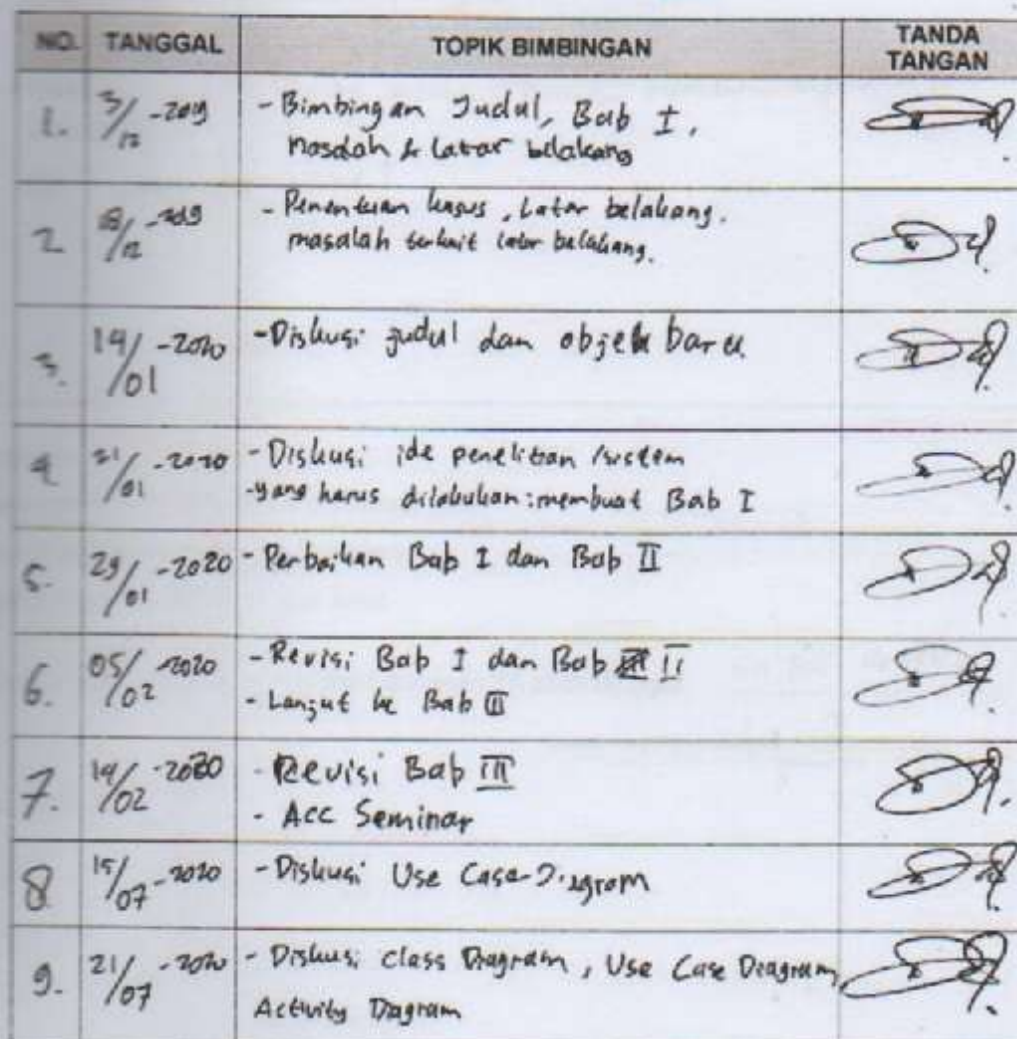 NO. TANGGAL TOPIK BIMBINGAN TANDA TANGAN
1. 3/12 -2019 - Bimbingan Judul, Bab I,
masalah & latar belakang
2 18/12 -2019 - Penentuan kasus, Latar belakang.
masalah terkait latar belakang.
3. 14/01 -2020 - Diskusi judul dan objek baru
4 21/01 -2020 - Diskusi ide penelitian /sistem
- yang harus dilakukan : membuat Bab I
5. 29/01 -2020 - Perbaikan Bab I dan Bab II
6. 05/02 -2020 - Revisi Bab I dan Bab II
- Lanjut ke Bab III
7. 19/02 -2020 - Revisi Bab III
- Acc Seminar
8 15/07 -2020 - Diskusi Use Case Diagram
9. 21/07 -2020 - Diskusi Class Diagram, Use Case Diagram,
Activity Diagram